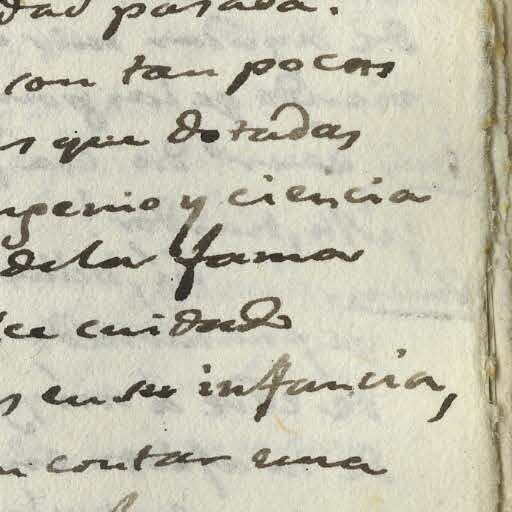 dad pasada.
son tan pocas
s que dotadas
ngenio y ciencia
de la fama
ce cuidado
s en su infancia,
n contar una